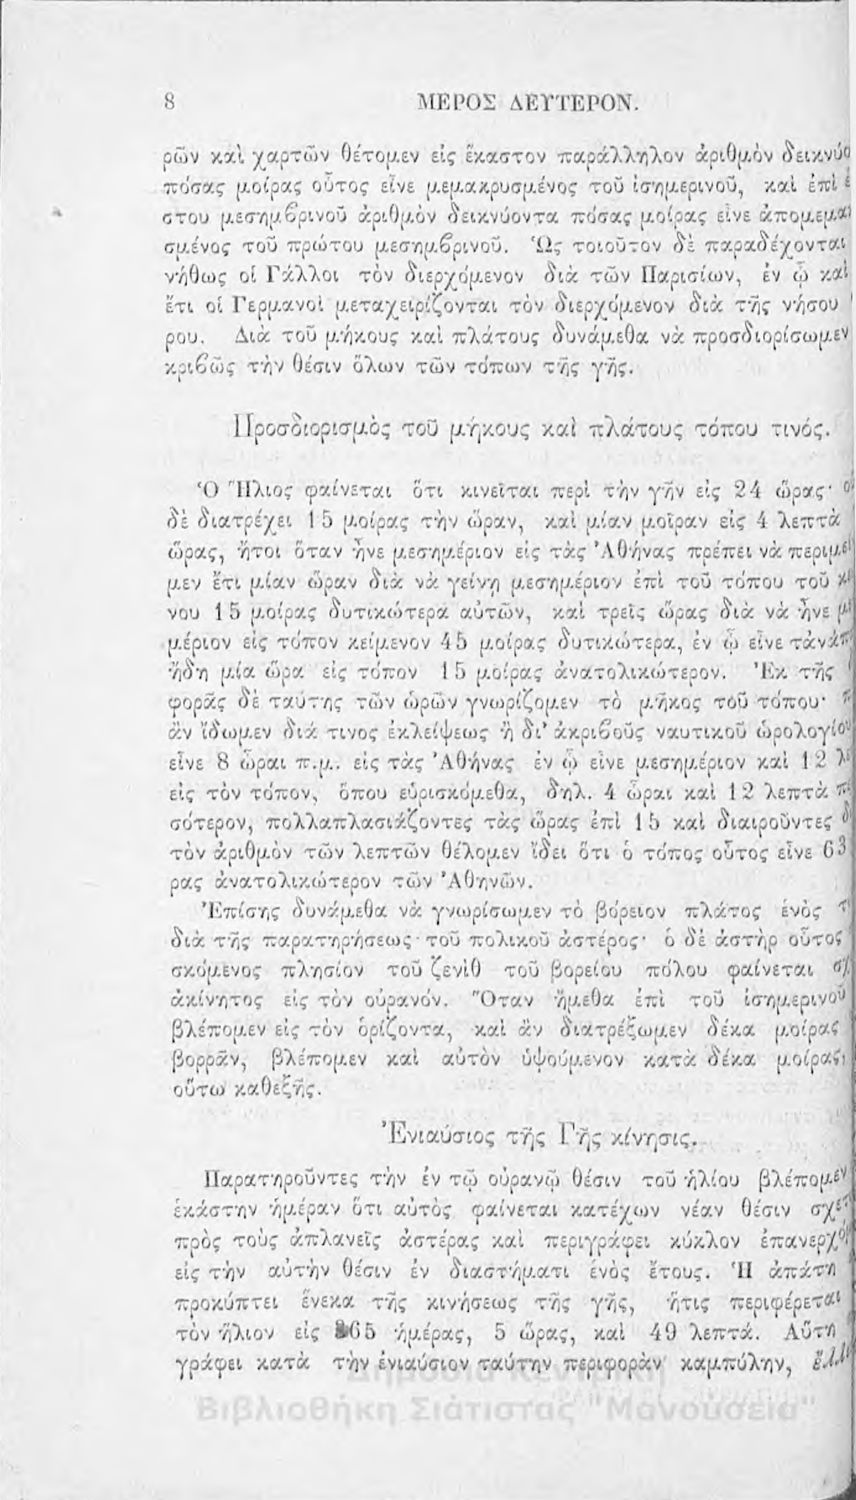 8 ΜΕΡΟΣ ΔΕΥΤΕΡΟΝ.
ρῶν καὶ χαρτῶν θέτομεν εἰς ἕκαστον παράλληλον ἀριθμὸν δεικνύο
πόσας μοίρας οὗτος εἶνε μεμακρυσμένος τοῦ ἰσημερινοῦ, καὶ ἐπὶ ἑ
στου μεσημβρινοῦ ἀριθμὸν δεικνύοντα πόσας μοίρας εἶνε ἀπομεμα
σμένος τοῦ πρώτου μεσημβρινοῦ. Ὡς τοιοῦτον δὲ παραδέχονται
νήθως οἱ Γάλλοι τὸν διερχόμενον διὰ τῶν Παρισίων, ἐν ᾧ καὶ
ἔτι οἱ Γερμανοὶ μεταχειρίζονται τὸν διερχόμενον διὰ τῆς νήσου
ρου. Διὰ τοῦ μήκους καὶ πλάτους δυνάμεθα νὰ προσδιορίσωμεν
κριβῶς τὴν θέσιν ὅλων τῶν τόπων τῆς γῆς.
Προσδιορισμὸς τοῦ μήκους καὶ πλάτους τόπου τινός.
Ὁ Ἥλιος φαίνεται ὅτι κινεῖται περὶ τὴν γῆν εἰς 24 ὥρας·
δὲ διατρέχει 15 μοίρας τὴν ὥραν, καὶ μίαν μοῖραν εἰς 4 λεπτὰ
ὥρας, ἤτοι ὅταν ἦνε μεσημέριον εἰς τὰς Ἀθήνας πρέπει νὰ περιμέ
μεν ἔτι μίαν ὥραν διὰ νὰ γείνῃ μεσημέριον ἐπὶ τοῦ τόπου τοῦ κ
νου 15 μοίρας δυτικώτερα αὐτῶν, καὶ τρεῖς ὥρας διὰ νὰ ἦνε μ
μέριον εἰς τόπον κείμενον 45 μοίρας δυτικώτερα, ἐν ᾧ εἶνε τἀνάπ
ἤδη μία ὥρα εἰς τόπον 15 μοίρας ἀνατολικώτερον. Ἐκ τῆς
φορᾶς δὲ ταύτης τῶν ὡρῶν γνωρίζομεν τὸ μῆκος τοῦ τόπου·
ἂν ἴδωμεν διά τινος ἐκλείψεως ἢ δι' ἀκριβοῦς ναυτικοῦ ὡρολογίο
εἶνε 8 ὧραι π.μ. εἰς τὰς Ἀθήνας ἐν ᾧ εἶνε μεσημέριον καὶ 12 λ
εἰς τὸν τόπον, ὅπου εὑρισκόμεθα, δηλ. 4 ὧραι καὶ 12 λεπτὰ
σότερον, πολλαπλασιάζοντες τὰς ὥρας ἐπὶ 15 καὶ διαιροῦντες δ
τὸν ἀριθμὸν τῶν λεπτῶν θέλομεν ἰδεῖ ὅτι ὁ τόπος οὗτος εἶνε 63
ρας ἀνατολικώτερον τῶν Ἀθηνῶν.
Ἐπίσης δυνάμεθα νὰ γνωρίσωμεν τὸ βόρειον πλάτος ἑνὸς τ
διὰ τῆς παρατηρήσεως τοῦ πολικοῦ ἀστέρος· ὁ δὲ ἀστὴρ οὗτος
σκόμενος πλησίον τοῦ ζενὶθ τοῦ βορείου πόλου φαίνεται σχ
ἀκίνητος εἰς τὸν οὐρανόν. Ὅταν ἤμεθα ἐπὶ τοῦ ἰσημερινοῦ
βλέπομεν εἰς τὸν ὁρίζοντα, καὶ ἂν διατρέξωμεν δέκα μοίρας
βορρᾶν, βλέπομεν καὶ αὐτὸν ὑψούμενον κατὰ δέκα μοίρας,
οὕτω καθεξῆς.
Ἐνιαύσιος τῆς Γῆς κίνησις.
Παρατηροῦντες τὴν ἐν τῷ οὐρανῷ θέσιν τοῦ ἡλίου βλέπομεν
ἑκάστην ἡμέραν ὅτι αὐτὸς φαίνεται κατέχων νέαν θέσιν σχε
πρὸς τοὺς ἀπλανεῖς ἀστέρας καὶ περιγράφει κύκλον ἐπανερχό
εἰς τὴν αὐτὴν θέσιν ἐν διαστήματι ἑνὸς ἔτους. Ἡ ἀπάτη
προκύπτει ἕνεκα τῆς κινήσεως τῆς γῆς, ἥτις περιφέρεται
τὸν ἥλιον εἰς 365 ἡμέρας, 5 ὥρας, καὶ 49 λεπτά. Αὕτη
γράφει κατὰ τὴν ἐνιαύσιον ταύτην περιφορὰν καμπύλην, ἔλλ
Δημόσια Κεντρική
Βιβλιοθήκη Σιάτιστας "Μανούσεια"